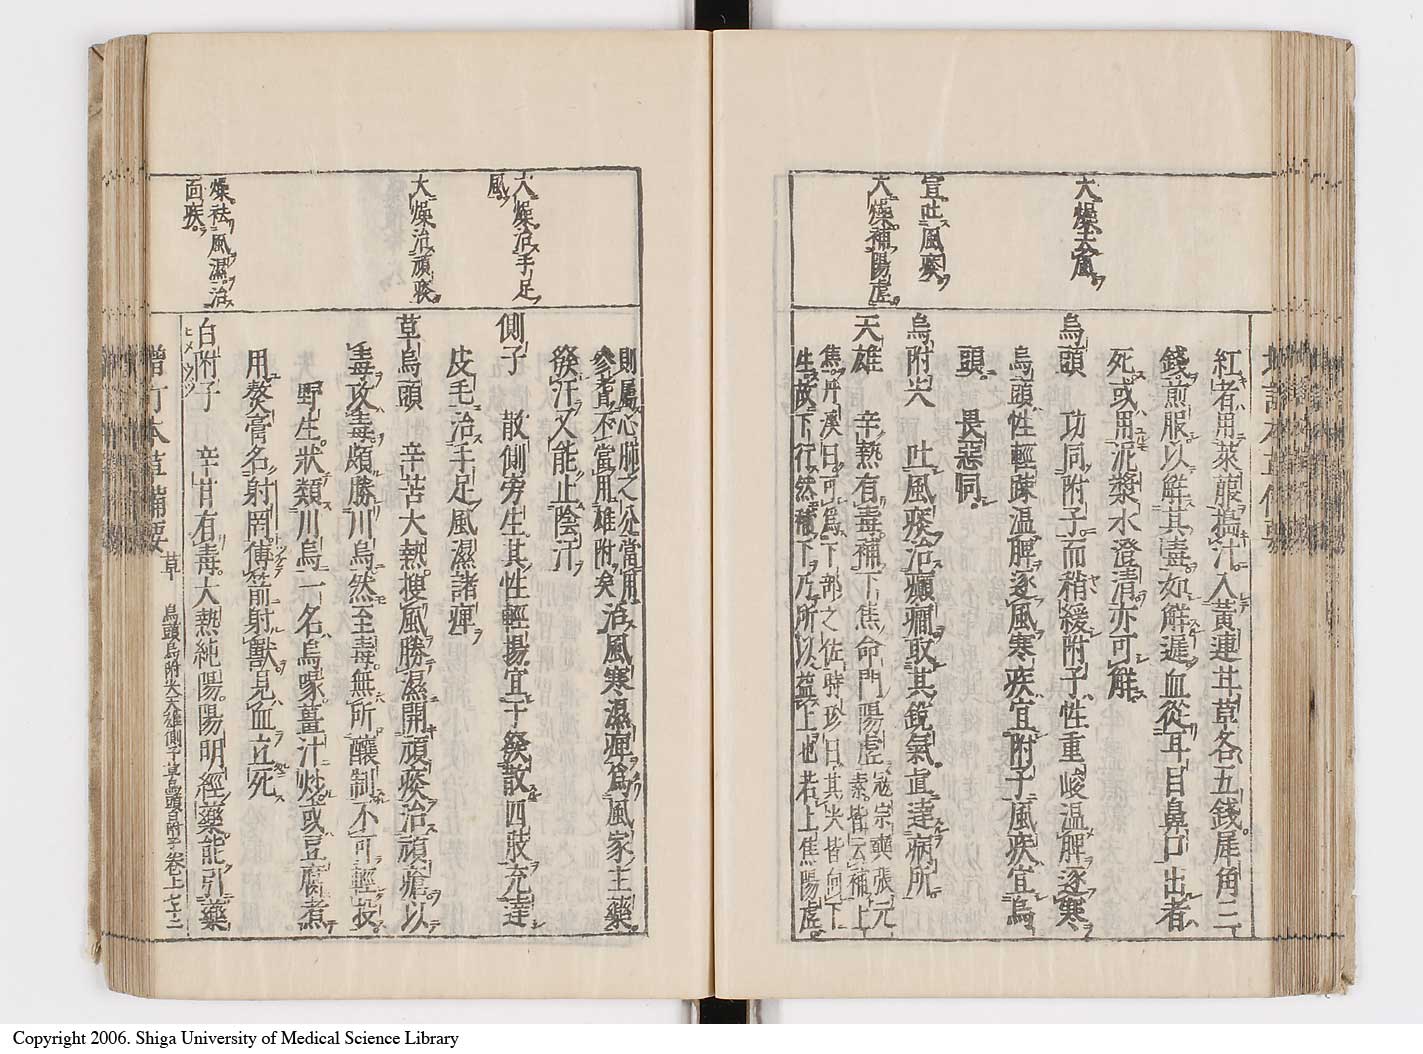 大燥去風
宣吐風痰
大燥補陽虛
紅者用萊菔搗汁入黃連甘草各五錢犀角三
錢煎服以解其蠱如解遲血從耳目鼻口出者
死或用泥漿水澄清亦可解
烏頭 功同附子而稍緩附子性重峻溫脾逐寒
烏頭性輕疎溫脾逐風寒疾宜附子風疾宜烏
頭 畏惡同
烏附尖 吐風痰治癲癇取其鋭氣直達病所
天雄 辛熱有毒補下焦命門陽虛寇宗奭張元
素皆云補上
焦丹溪曰可爲下部之佐時珍曰其尖皆向下
生故下行然補下乃所以益上也若上焦陽虛
大燥治手足
風
大燥治頑痰
燥祛風濕治
面疾
則屬心肺之分當用
參耆不當用雄附矣治風寒濕痺爲風家主藥
發汗又能止陰汗
側子 散側旁生其性輕揚宜于發散四肢充達
皮毛治手足風濕諸痺
草烏頭 辛苦大熱搜風勝濕開頑痰治頑瘡以
毒攻毒頗勝川烏然至毒無所釀制不可輕投
野生狀類川烏一名烏喙薑汁炒或豆腐煮
用熬膏名射罔傅箭射獸見血立死
白附子 辛甘有毒大熱純陽陽明經藥能引藥
ヒメウツ
增訂本草備要 草 烏頭烏附尖天雄側子草烏頭白附子 卷上 七十二
Copyright 2006. Shiga University of Medical Science Library